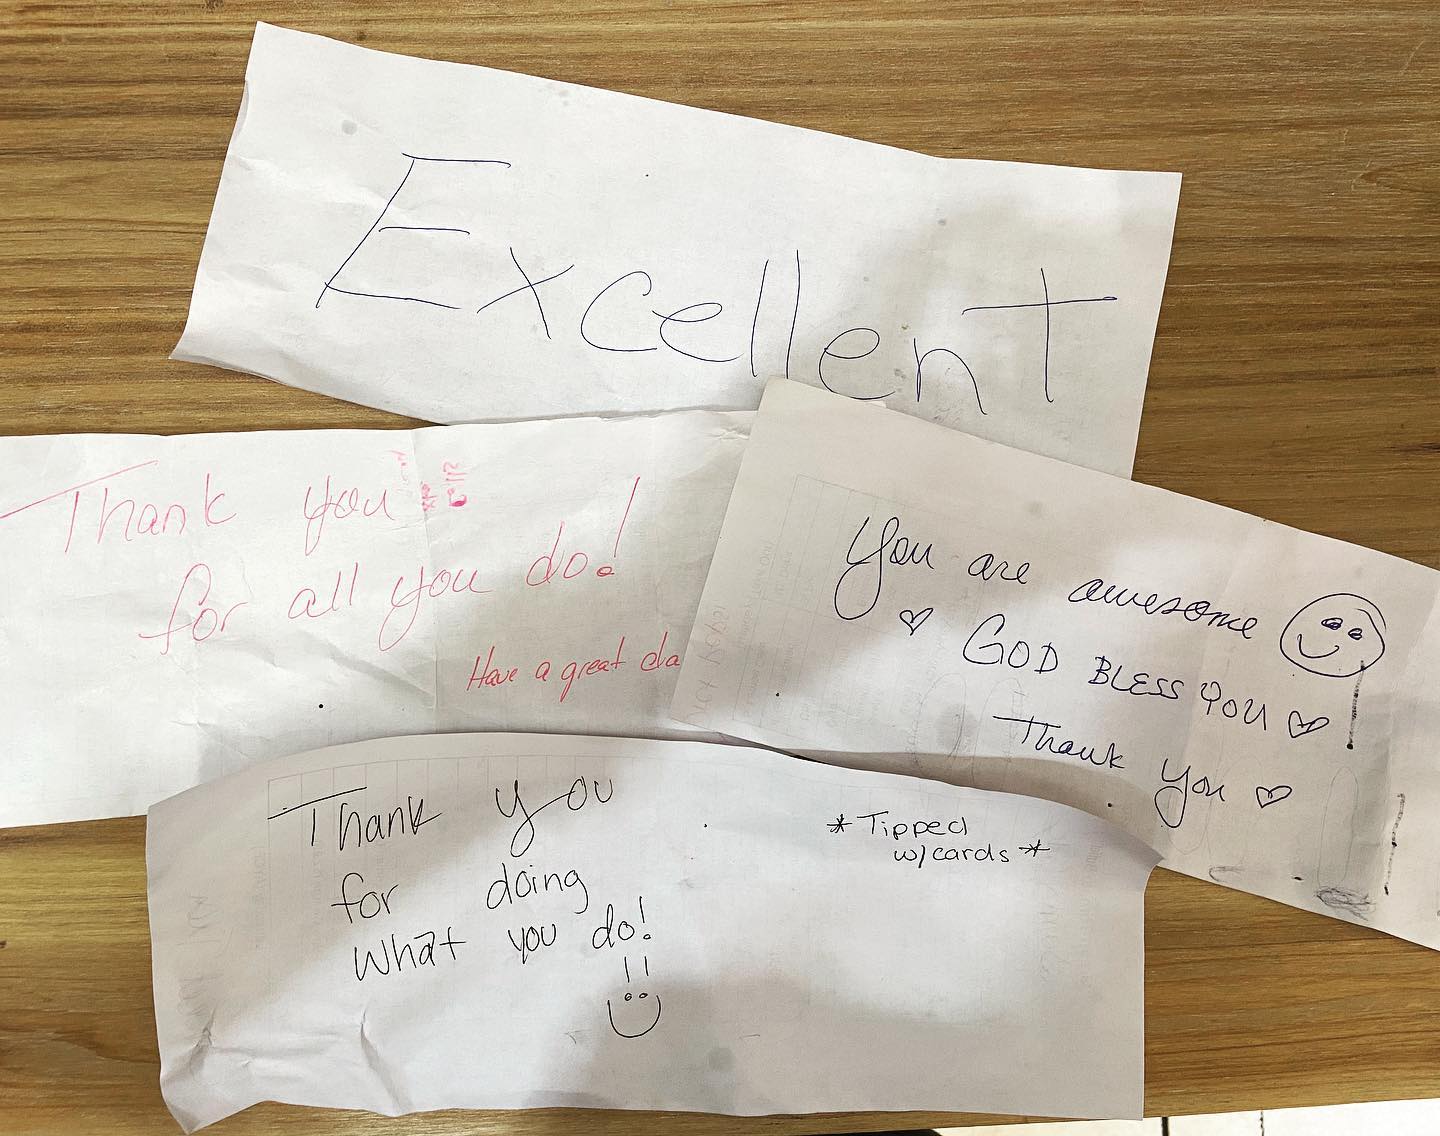 Excellent
Thank you
for all you do!
Have a great da
You are awesome
GOD BLESS YOU
Thank you
Thank you
for doing
what you do!
*Tipped
w/cards*